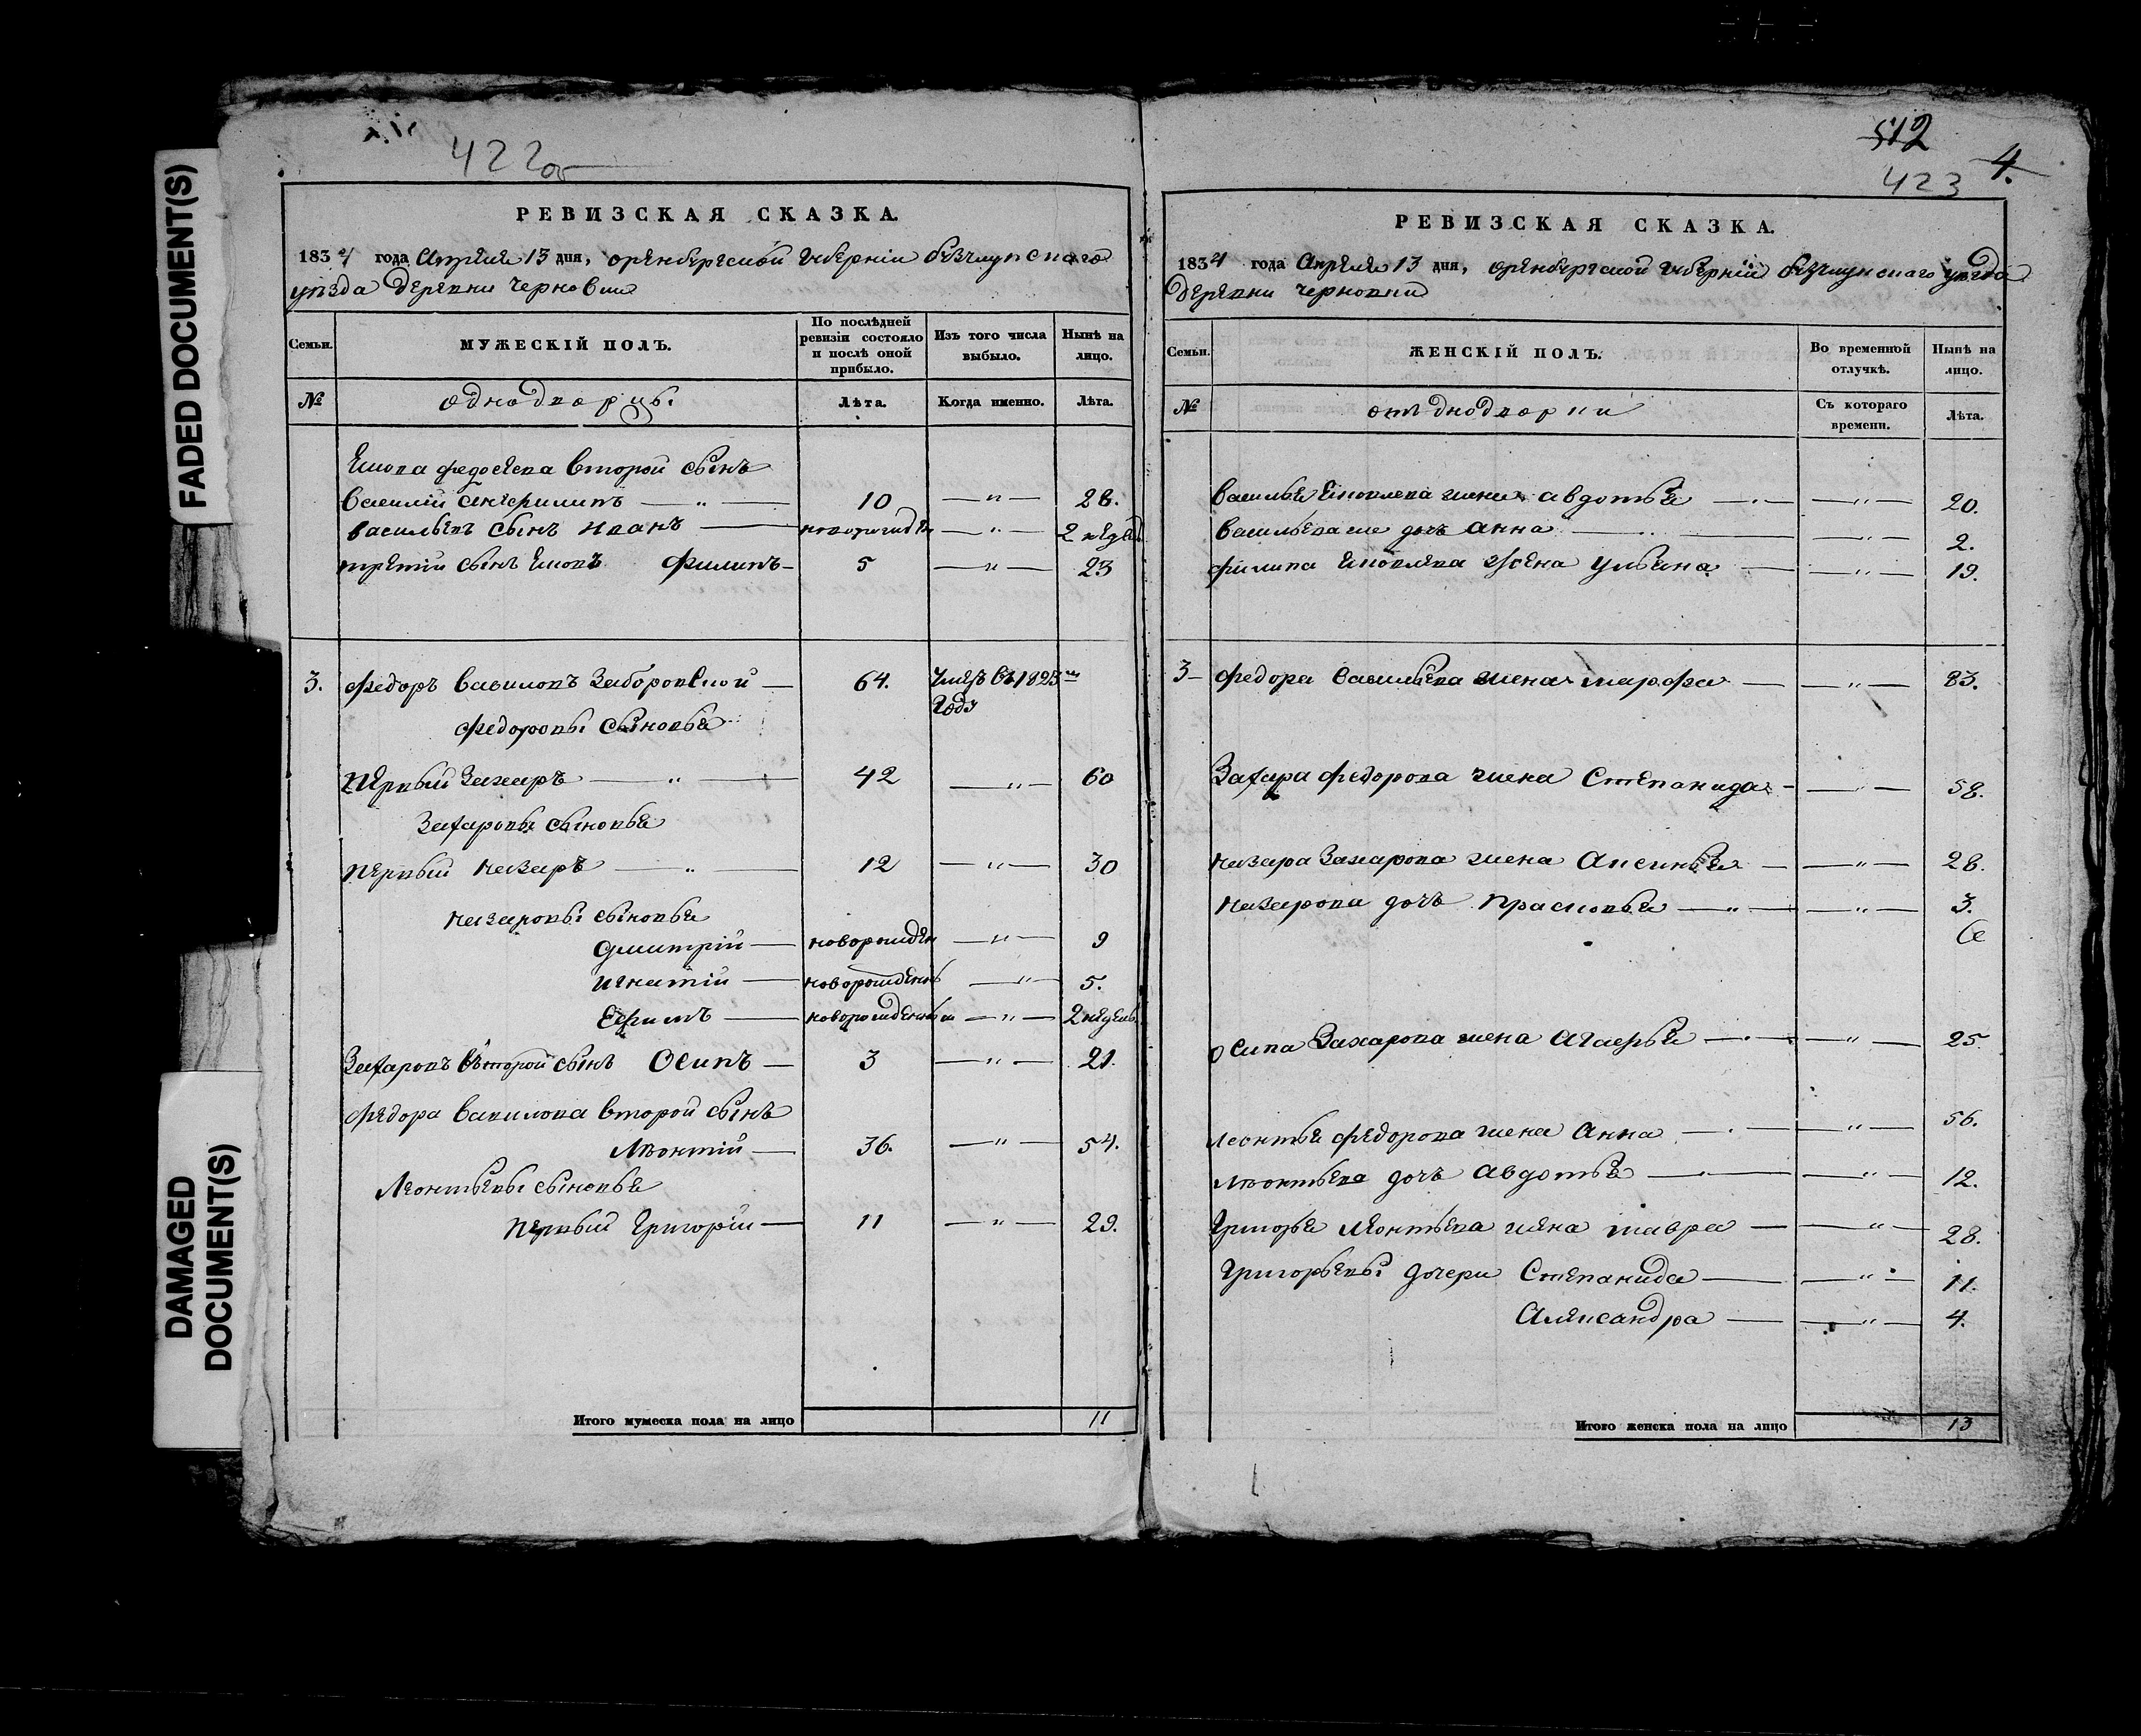 FADED DOCUMENT(S)
DAMAGED
DOCUMENT(S)
422об
РЕВИЗСКАЯ СКАЗКА.
1834 года Апреля 13 дня, оренбергской губернии
уезда деревни Черновки
Семьи.
МУЖЕСКІЙ ПОЛЪ.
По послѣдней ревизіи состояло и послѣ оной прибыло.
Изъ того числа выбыло.
Нынѣ на лицо.
№
однодворцы.
Лѣта.
Когда именно.
Лѣта.
федосеева второй сынъ
василій 10 — " — 28.
васильевъ сынъ иванъ — " — 2 недель
третій сынъ филипъ 5 — " — 23
3. федоръ вавиловъ Заборовской 64. умеръ въ 1823м году
федоровы сыновья
первый Захаръ — " — 42 — " — 60
Захаровы сыновья
первый назаръ — " — 12 — " — 30
назаровы сыновья
дмитрій новорожден — " — 9
игнатій новорожденъ — " — 5.
Ефимъ — " — 2 недель
Захаровъ второй сынъ Осипъ 3 — " — 21.
федора вавилова второй сынъ
Леонтій 36. — " — 54.
Леонтьевы сыновья
первый григорій 11 — " — 29.
Итого мужеска пола на лицо 11
512
423
4.
РЕВИЗСКАЯ СКАЗКА.
1834 года Апреля 13 дня, оренбергской губерніи уезда
деревни Черновки
Семьи.
ЖЕНСКІЙ ПОЛЪ.
Во временной отлучкѣ.
Нынѣ на лицо.
№
Съ котораго времени.
Лѣта.
василья жена авдотья — " — 20.
васильева дочь анна — " — 2.
филипа жена ульяна — " — 19.
3 федора жена марфа — " — 83.
Захара федорова жена Степанида — 58.
назара Захарова жена аксинья — " — 28.
назарова дочь прасковья — " — 3.
осипа Захарова жена агафья — " — 25.
леонтья федорова жена анна — " — 56.
леонтьева дочь авдотья — " — 12.
григорья леонтьева жена мавра — " — 28.
григорьевы дочери Степанида — " — 11.
Александра — " — 4.
Итого женска пола на лицо 13